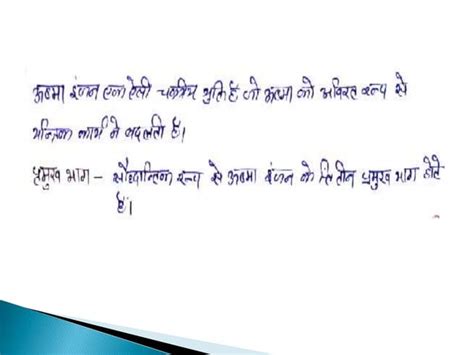 ऊष्मा इंजन एक ऐसी चक्रीय युक्ति है जो ऊष्मा को अविरत रूप से
यान्त्रिक कार्य में बदलती है।
प्रमुख भाग - सैद्धान्तिक रूप से ऊष्मा इंजन के तीन प्रमुख भाग होते
हैं।